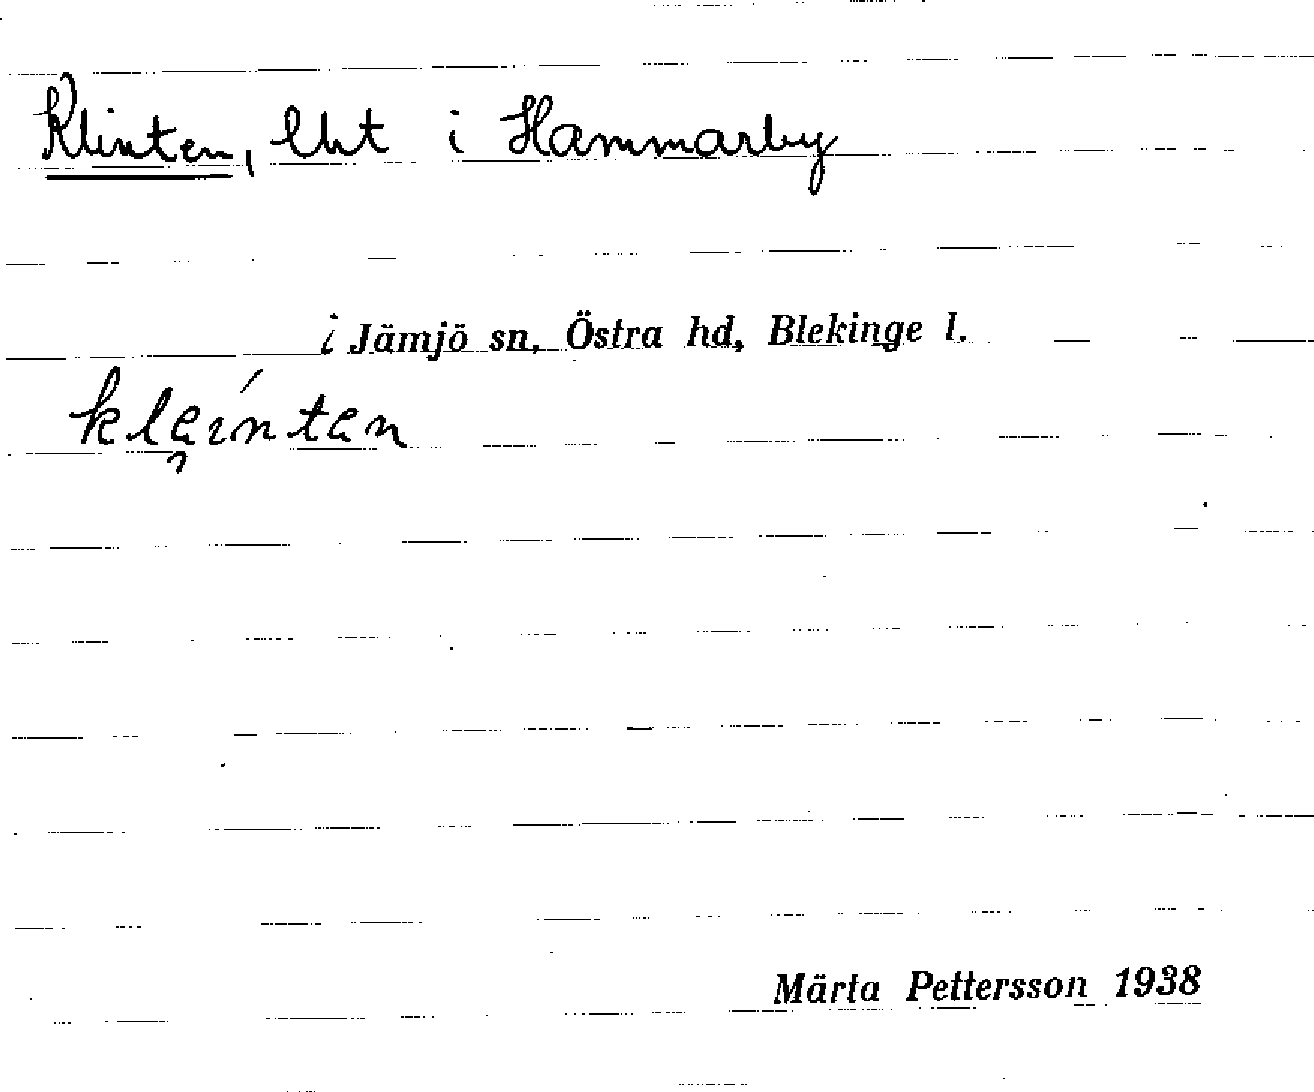 Klinten, lht i Hammarby
i Jämjö sn, Östra hd, Blekinge l.
Märta Pettersson 1938